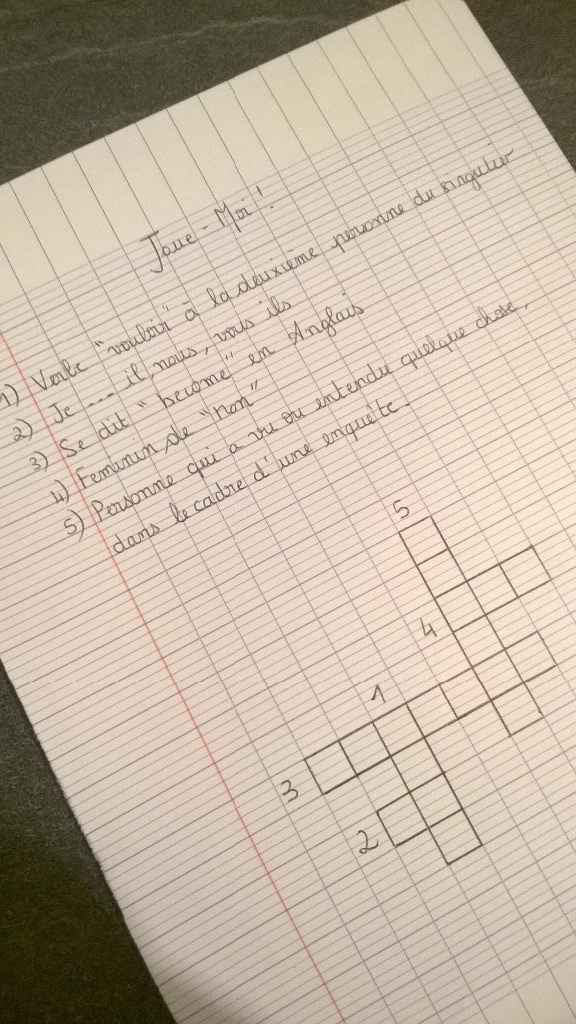 Joue-Moi !
1) Verbe "vouloir" à la deuxième personne du singulier
2) Je --- il, nous, vous ils
3) Se dit "become" en Anglais
4) Feminin de "non"
5) Personne qui a vu ou entendu quelque chose,
dans le cadre d'une enquête.
5
4
1
3
2